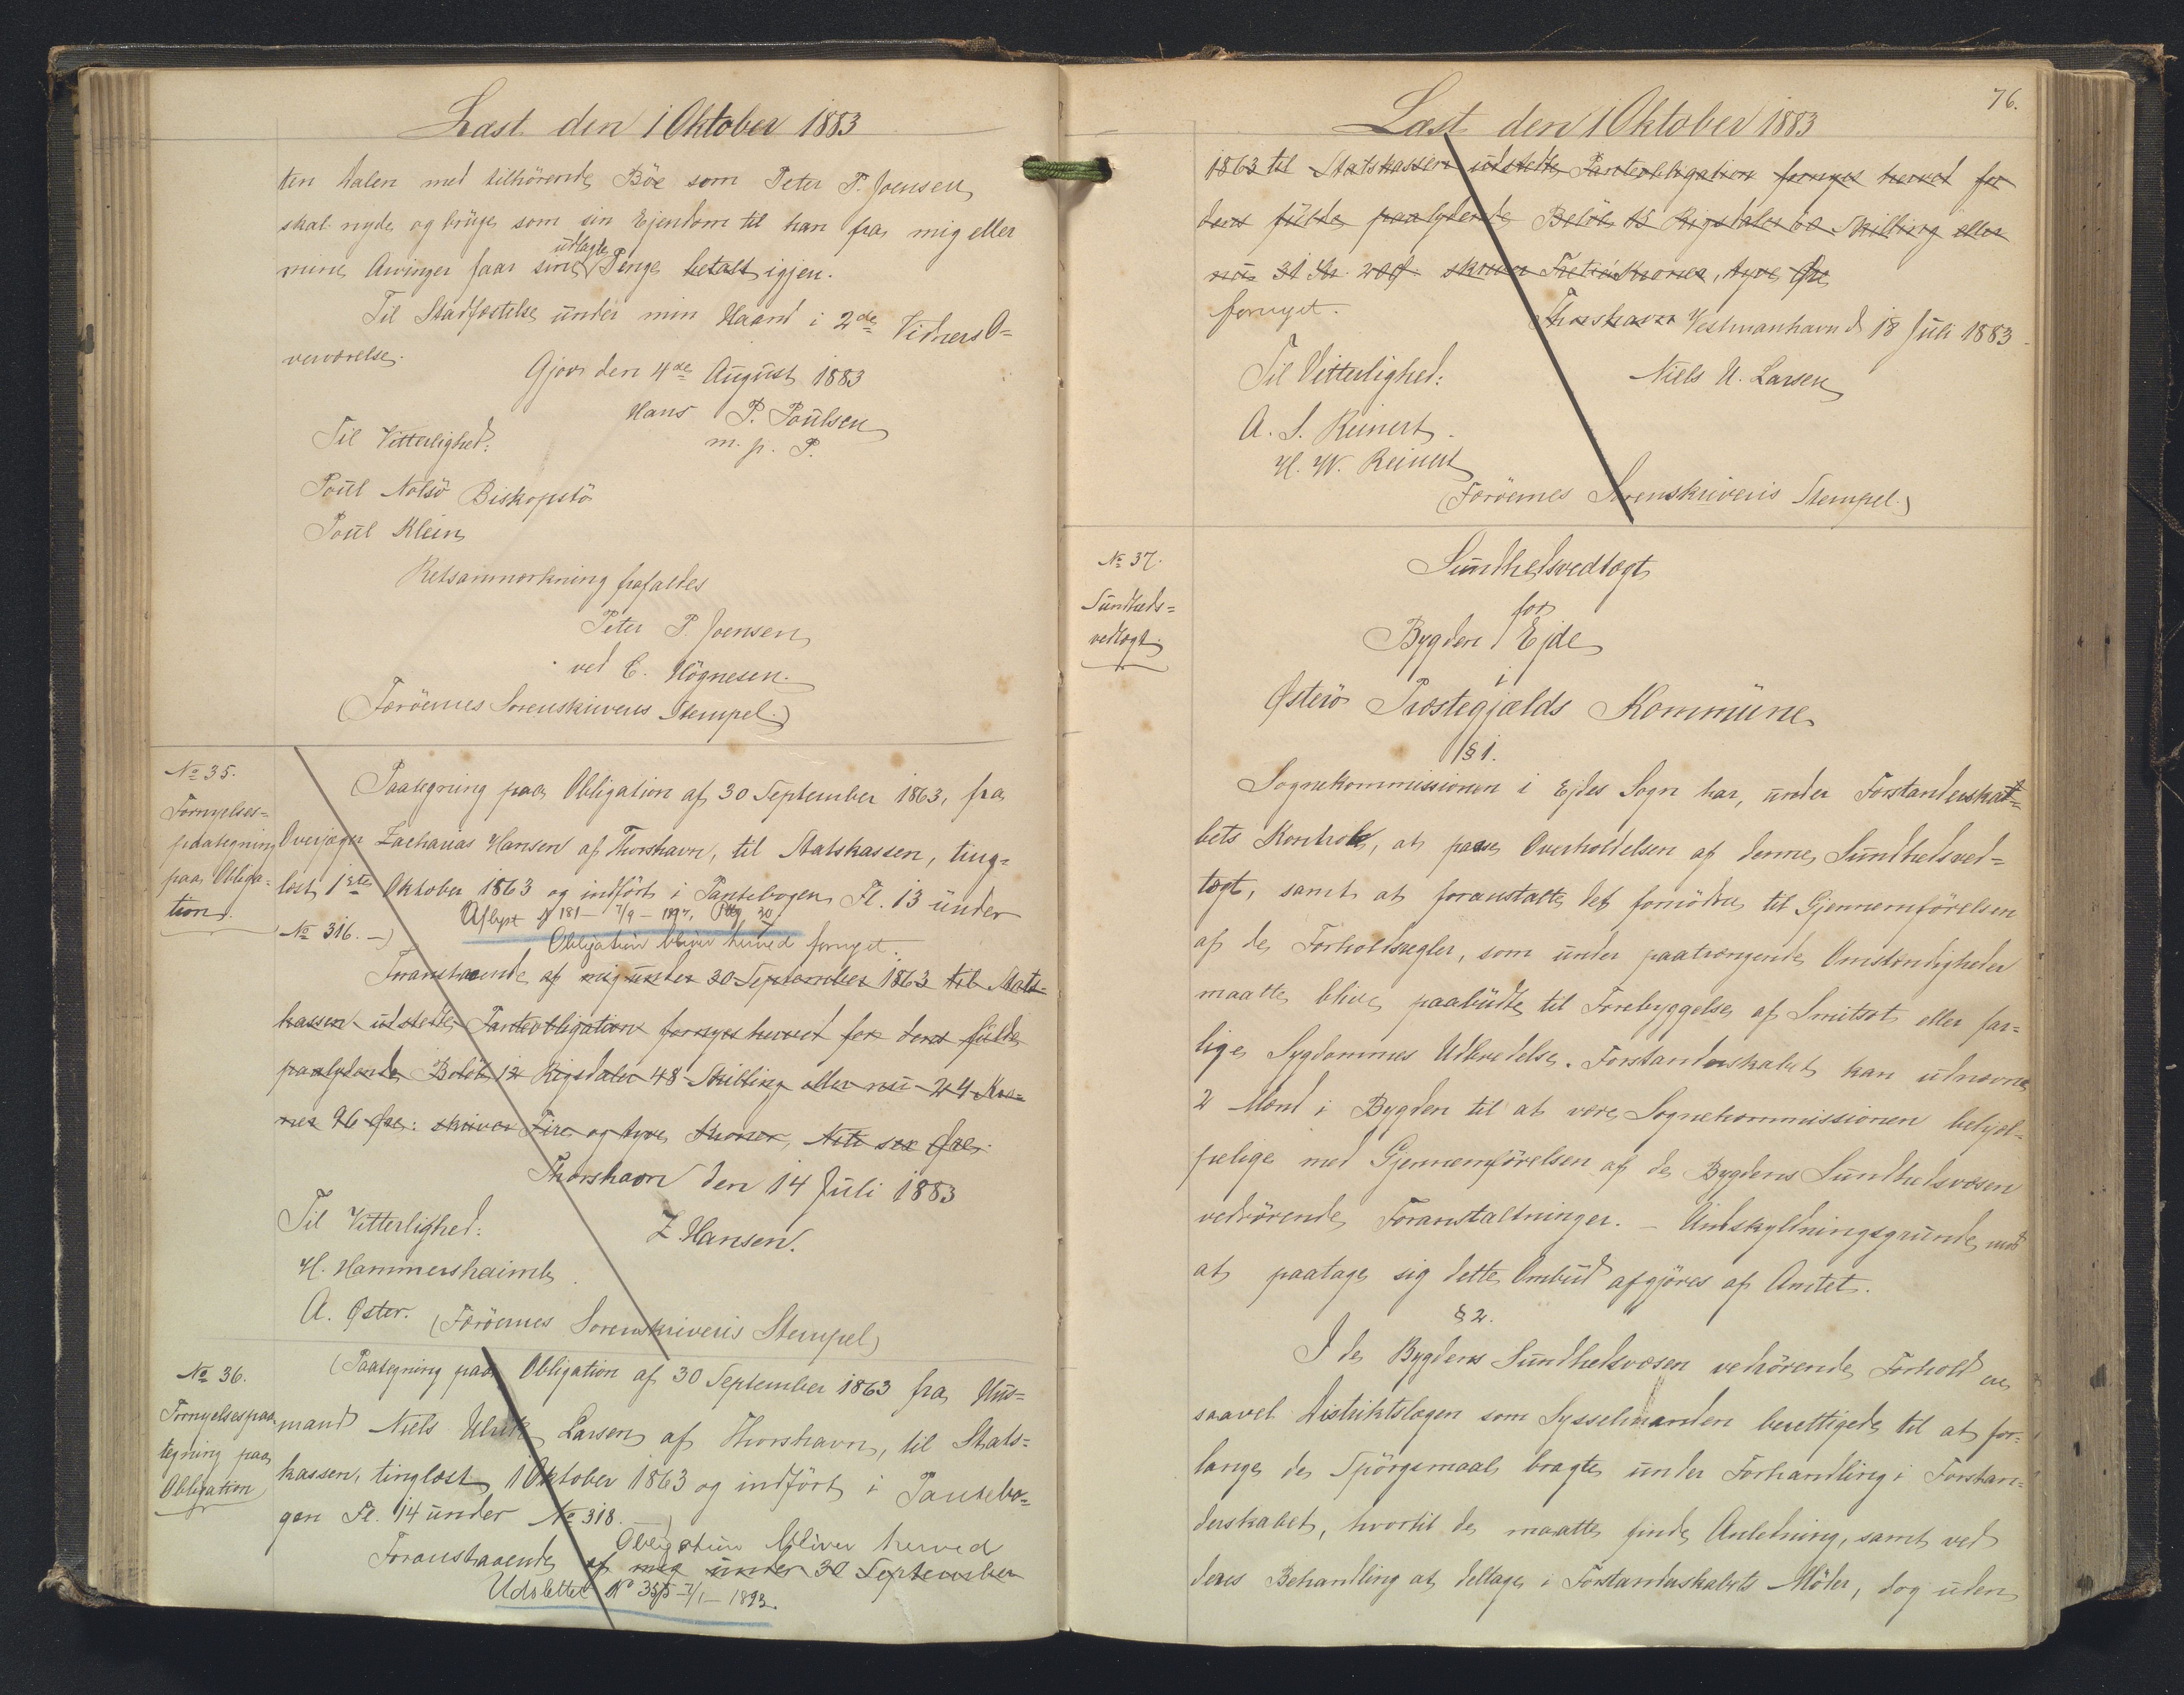 Læst den 1 Oktober 1883
ten Halen med tilhörende Böe som Peter P. Joensen
skal nyde og brüge som sin Ejendom til han fra mig eller
mine Arvinger faar sine udlagte Penge betalt igjen.
Til Stadfæstelse ünder min Haand i 2de Vidners O=
verværelse.
Gjov den 4de Aügüst 1883
Hans P. Poülsen
m. p. P.
Til Vitterlighed:
Poül Nolsö Biskopstö
Poül Klein
Retsanmærkning frafaldes
Peter P. Joensen
ved C. Högnesen.
(Færöernes Sorenskriveris Stempel.)
No 35.
Fornyelses=
paategning
paa Obliga=
tion.
(Paategning paa Obligation af 30 September 1863, fra
Overjæger Zacharias Hansen af Thorshavn, til Statskassen, ting=
læst 1ste Oktober 1863 og indfört i Pantebogen Fl. 13 ünder
No 316. —)
Aflyst No 181 — 7/9 — 1897.
Obligation bliver herved fornyet.
Foranstaaende af mig ünder 30 September 1863 til Stats=
kassen udstedte Panteobligation fornyes herved for dens fülde
paalydende Belöb 12 Rigsdaler 48 Skilling eller nü 24 Kro=
ner 96 Øre: skriver Fire og tyve Kroner, Niti sex Øre.
Thorshavn den 14 Jüli 1883
Til Vitterlighed:
Z. Hansen.
H. Hammershaimb
A. Øster. (Færöernes Sorenskriveris Stempel)
No 36.
Fornyelsespaa
tegning paa
Obligation
(Paategning paa Obligation af 30 September 1863 fra Hüs=
mand Niels Ulrik Larsen af Thorshavn, til Stats=
kassen, tinglæst 1 Oktober 1863 og indfört i Pantebo=
gen Fl. 14 ünder No 318. —)
Obligation bliver herved
Foranstaaende af mig ünder 30 September
Udslettet No 355 — 7/1 — 1893.
76.
Læst den 1 Oktober 1883
1863 til Statskassen udstedte Panteobligation fornyes herved for
dens fülde paalydende Belöb 15 Rigsdaler 60 Skilling eller
nü 31 Kr. 20 Ø. skriver Treti én Kroner, tyve Øre
fornyet.
Thorshavn Vestmanhavn d. 18 Jüli 1883.
Til Vitterlighed:
Niels U. Larsen
A. S. Reinert.
H. W. Reinert
(Færöernes Sorenskriveris Stempel.)
No 37.
Sündheds=
vedtægt.
Sündhedsvedtægt
for
Bygden Ejde
i
Østerö Præstegjælds Kommüne
§ 1.
Sognekommissionen i Ejdes Sogn har, ünder Forstanderska=
bets Kontrol, at paase Overholdelsen af denne Sündhedsved=
tægt, samt at foranstalte det fornödne til Gjennemförelsen
af de Forholdsregler, som ünder paatrængende Omstændigheder
maatte blive paabüdte til Forebyggelse af Smitsot eller far=
lige Sygdommes Udbredelse. Forstanderskabet kan udnævne
2 Mænd i Bygden til at være Sognekommissionen behjæl=
pelige med Gjennemförelsen af de Bygdens Sündhedsvæsen
vedrörende Foranstaltninger. — Undskyldningsgründe mod
at paatage sig dette Ombüd afgjöres af Amtet.
§ 2.
I de Bygdens Sündhedsvæsen vedrörende Forhold ere
saavel Distriktslægen som Sysselmanden berettigede til at for=
lange de Spörgsmaal bragte ünder Forhandling i Forstan=
derskabet, hvortil de maatte finde Anledning, samt ved
deres Behandling at deltage i Forstanderskabets Möder, dog uden